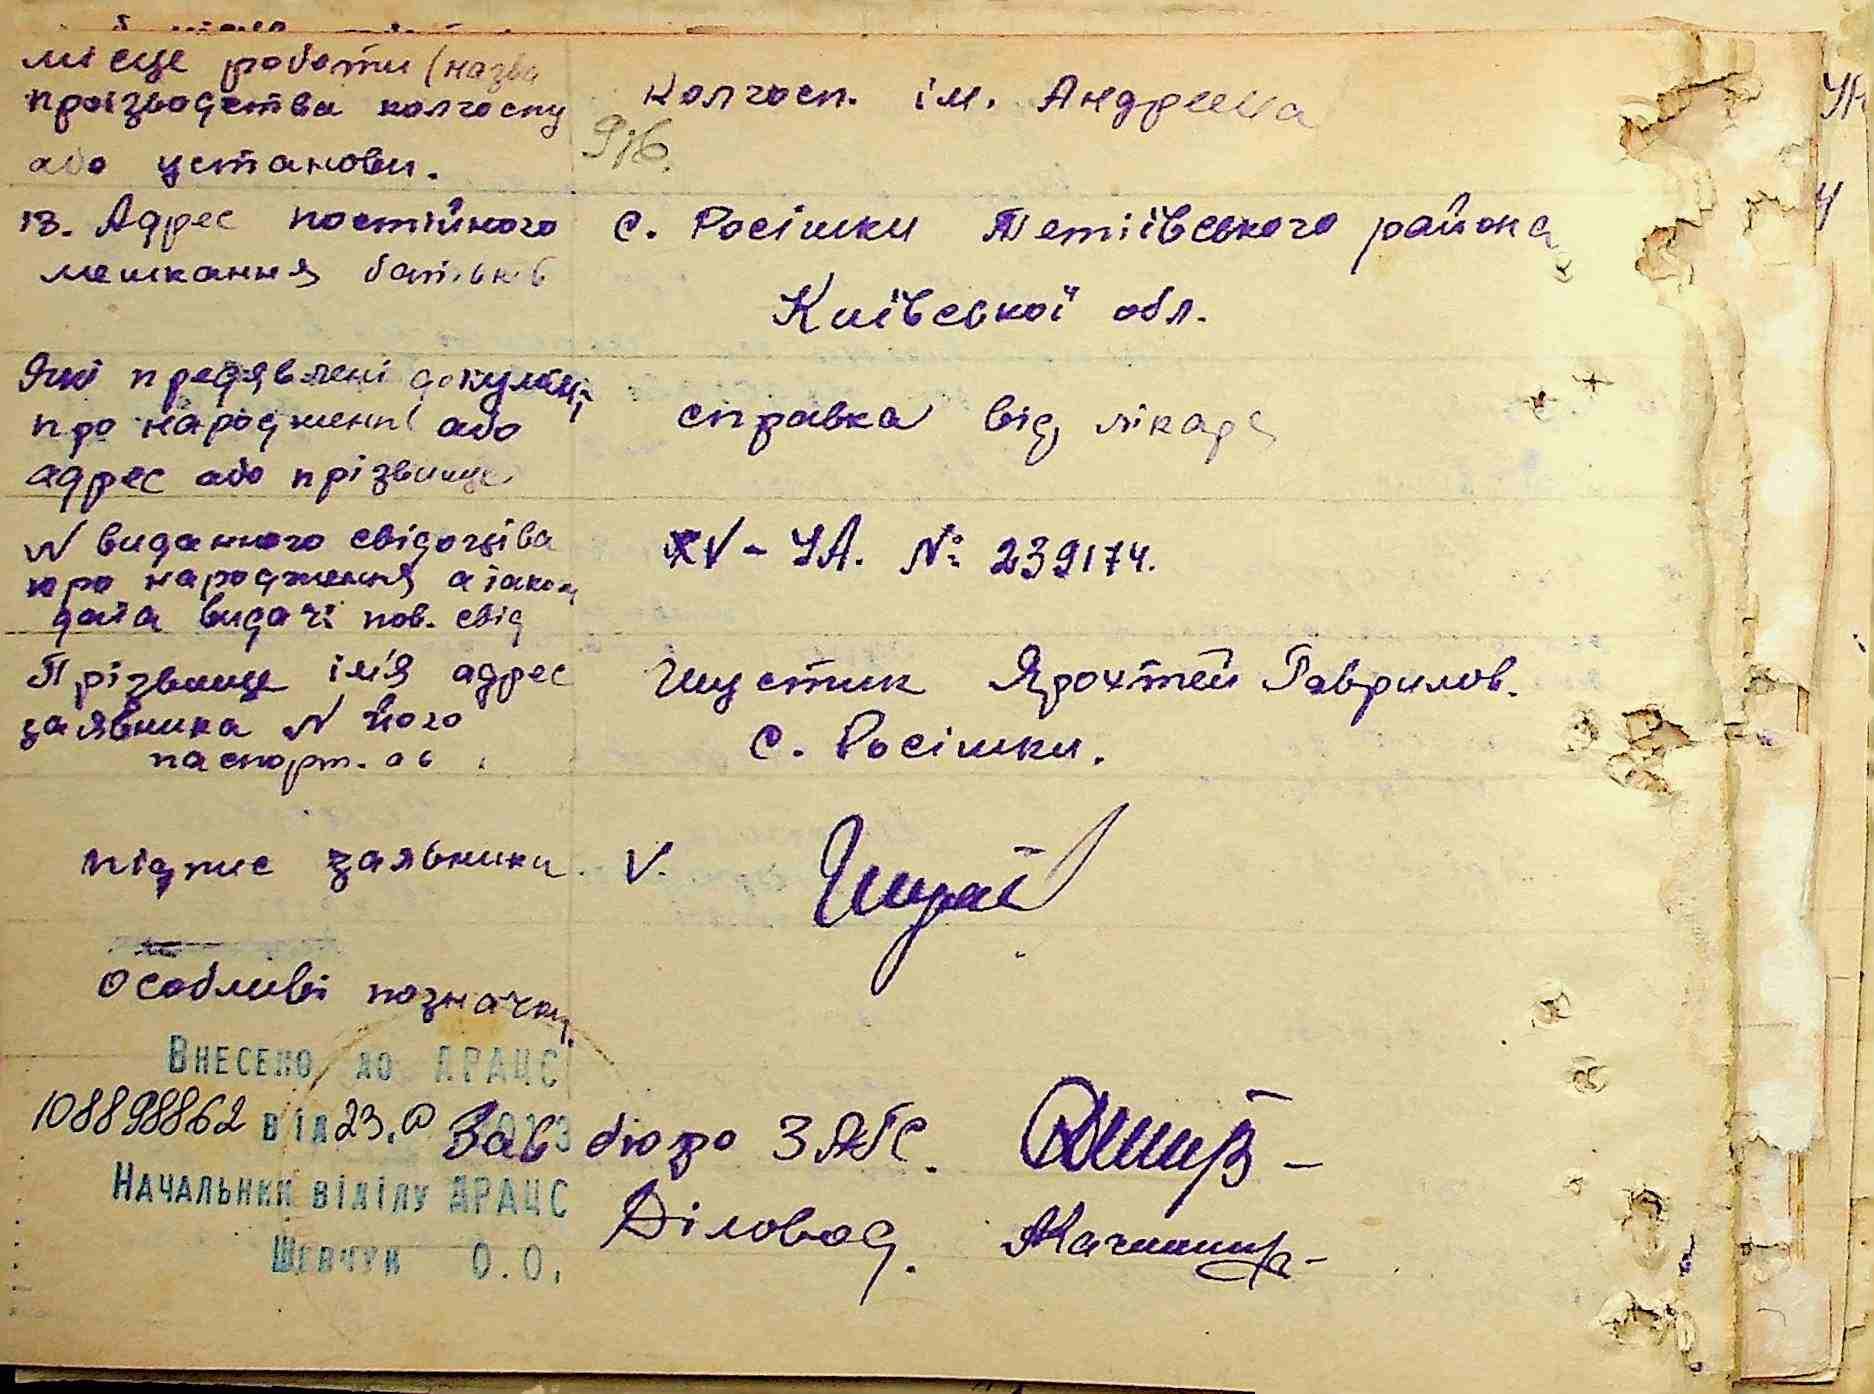 місце роботи (назва
проізводства колгоспу
або установи.
Колгосп. ім. Андреєва
916.
13. Адрес постійного
мешкання батьків
с. Росішки Тетіївського района
Київської обл.
Які предявлені документи
про народженні або
адрес або прізвище
справка від лікаря
N виданного свідоцтва
про народження а також
дата видачі пов. свід
XV-УА. №: 239174.
Прізвище імя адрес
заявника N його
паспорт. ов
Шустик Ярохтей Гаврилов.
с. Росішки.
підпис заявники. V.
Особливі позначки.
Внесено до ДРАЦС
108898862 від 23.
Начальник відділу ДРАЦС
Шевчук О.О.
Зав бюро ЗАГС.
Діловод.